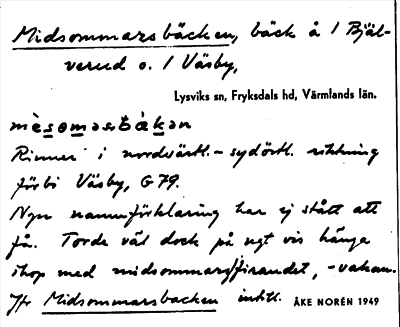 Midsommarsbäcken, bäck å 1 Bjäl-
verud o. 1 Väsby,
Lysviks sn, Fryksdals hd, Värmlands län.
Rinner i nordvästl.-sydöstl. riktning
förbi Väsby, G 79.
Ngn namnförklaring har ej stått att
få. Torde väl dock på ngt vis hänga
ihop med midsommarsfirandet, -vakan.
Jfr Midsommarsbacken intill.
ÅKE NORÉN 1949